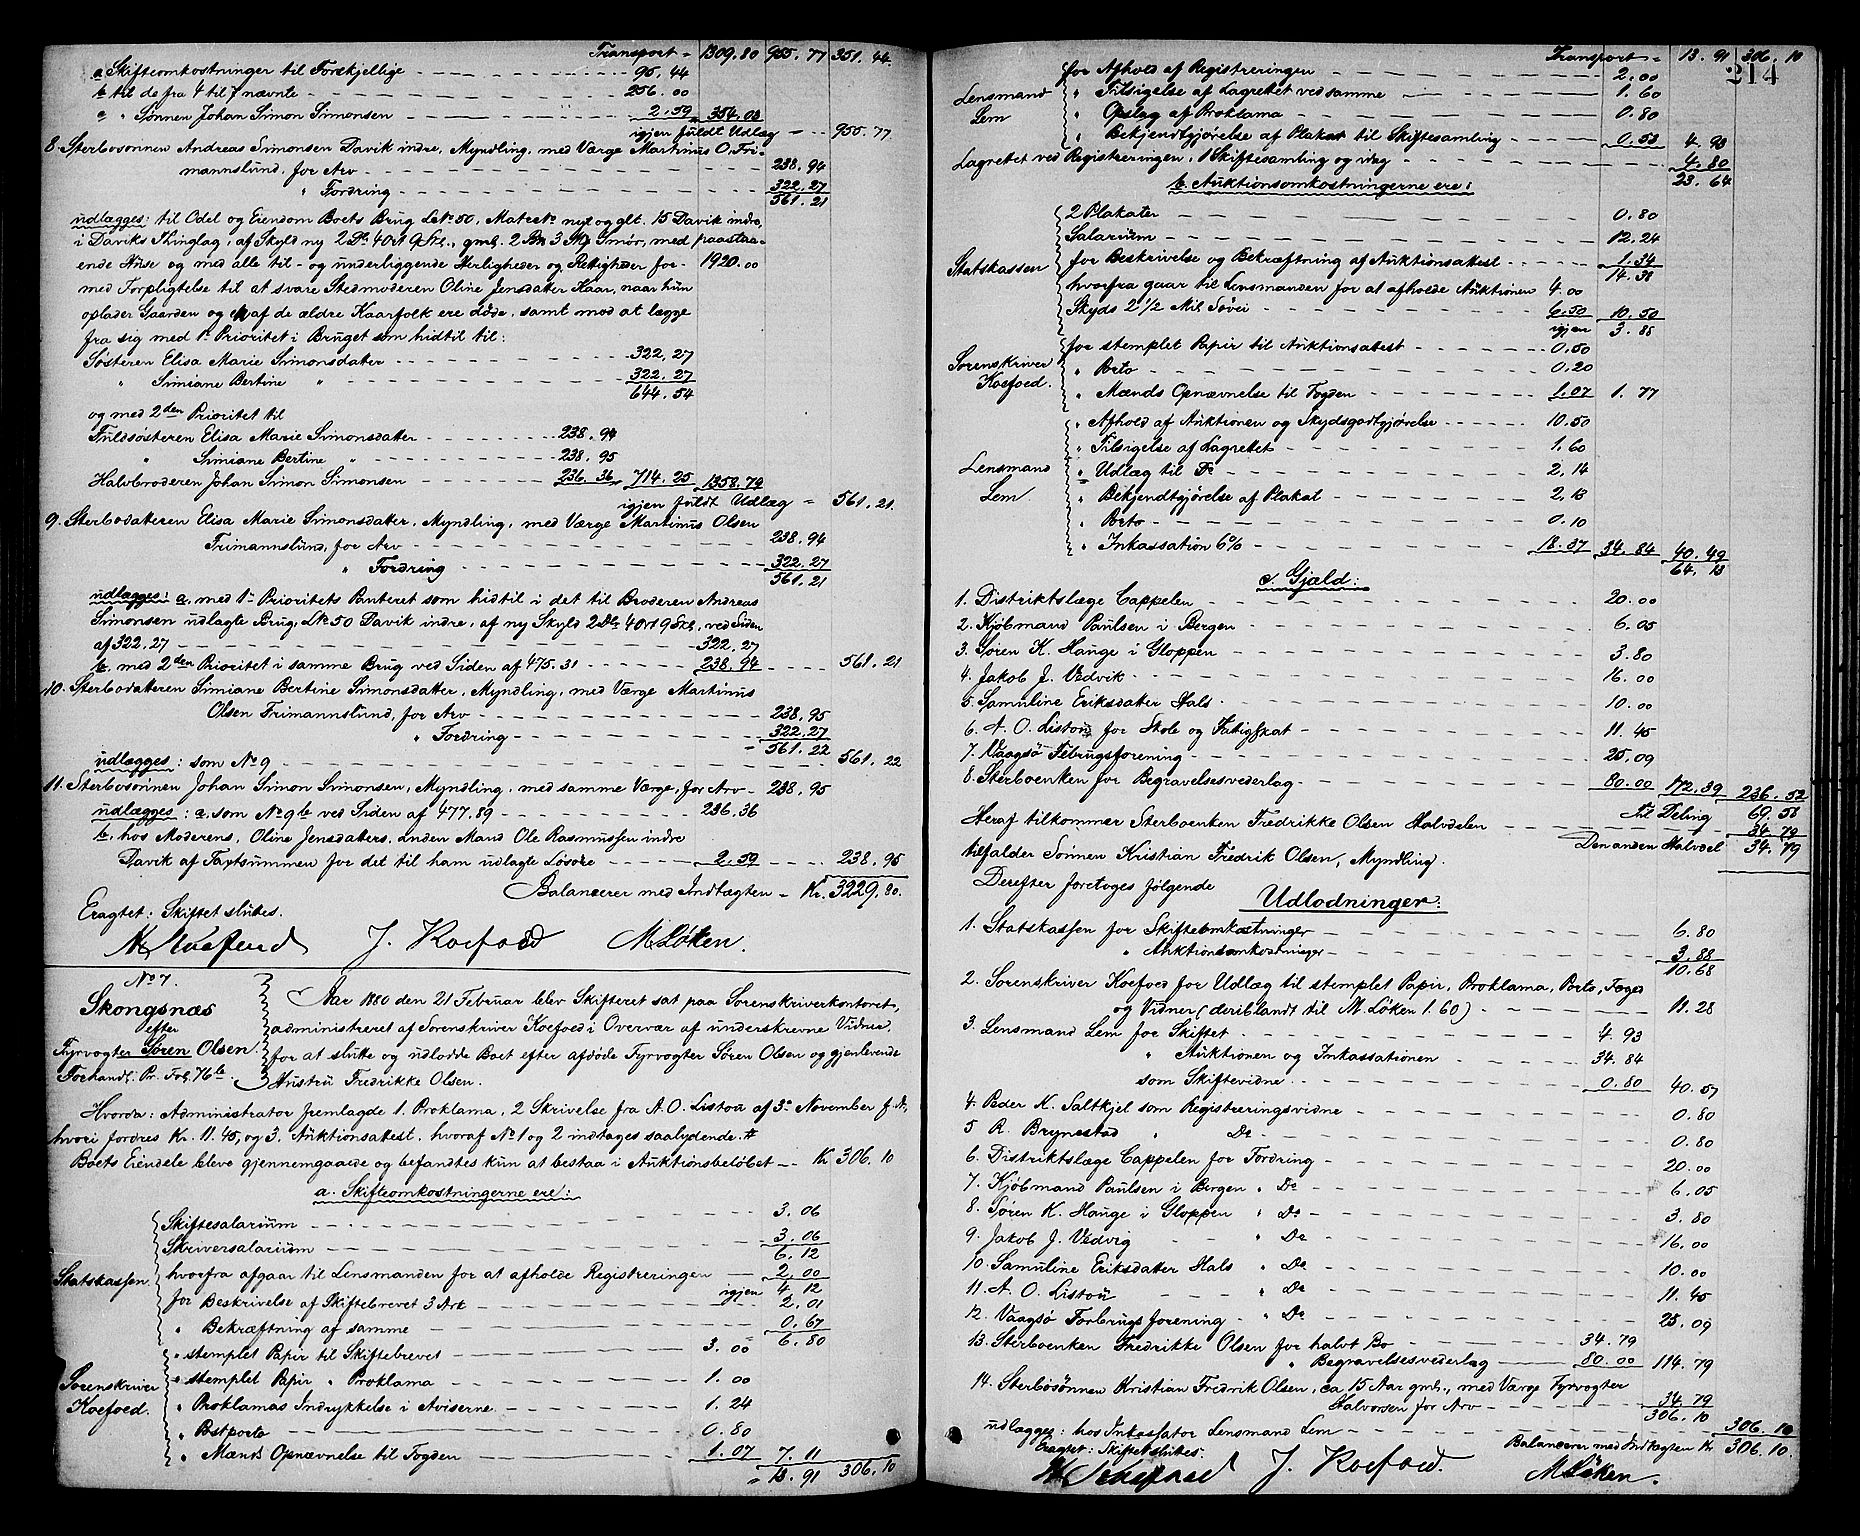 Transport = 1309.80 955.77 351.44.
a Skifteomkostninger til Forskjellige 95.44
b til de fra 4 til 7 nævnte 256.00
c " Sønnen Johan Simon Simonsen 2.59 354.03
igjen fuldt Udlæg 955.77
8. Sterbosønnen Andreas Simonsen Davik indre, Myndling, med Værge Martinus O. Fri-
mannslund, for Arv 238.94
" Fordring 322.27
561.21
udlægges: til Odel og Eiendom Boets Brug Lnº 50, Matrnº ny og glt. 15 Davik indre,
i Daviks Thinglag, af Skyld ny 2 Dl. 4 Ort 9 Sk., gml. 2 Pn 3 Mk Smør, med paastaa-
ende Huse og med alle til- og underliggende Herligheder og Rettigheder for 1920.00
med Forpligtelse til at svare Stedmoderen Oline Jensdatter Kaar, naar hun
oplader Gaarden og af de ældre Kaarfolk ere døde, samt mod at lægge
fra sig med 1e Prioritet i Bruget som hidtil til:
Søsteren Elisa Marie Simonsdatter 322.27
" Simiane Bertine " 322.27
644.54
og med 2den Prioritet til
Fuldsøsteren Elisa Marie Simonsdatter 238.94
" Simiane Bertine " 238.95
Halvbroderen Johan Simon Simonsen 236.36 714.25 1358.79
igjen fuldt Udlæg = 561.21.
9. Sterbodatteren Elisa Marie Simonsdatter, Myndling, med Værge Martinus Olsen
Frimannslund, for Arv 238.94
" Fordring 322.27
561.21
udlægges: a. med 1e Prioritets Panteret som hidtil i det til Broderen Andreas
Simonsen udlagte Brug, Lnº 50 Davik indre, af ny Skyld 2 Dl. 4 Ort 9 Sk., ved Siden
af 322.27 322.27
b. med 2den Prioritet i samme Brug ved Siden af 475.31 238.94 561.21
10. Sterbodatteren Simiane Bertine Simonsdatter, Myndling, med Værge Martinus
Olsen Frimannslund, for Arv 238.95
" Fordring 322.27
561.22
udlægges: som Nº 9 561.22
11. Sterbosønnen Johan Simon Simonsen, Myndling, med samme Værge, for Arv 238.95
udlægges: a. som Nº 9 b ved Siden af 477.89 236.36
b. hos Moderens, Oline Jensdatters, anden Mand Ole Rasmussen indre
Davik af Taxtsummen for det til ham udlagte Løsøre 2.59 238.95
Balancerer med Indtægten = Kr. 3229.80.
Eragtet: Skiftet sluttes.
J. Koefoed M Løken.
Nº 7.
Skongsnæs
efter
Fyrvogter Søren Olsen.
Forhandl. Pr. Fol. 76b.
Aar 1880 den 21 Februar blev Skifteret sat paa Sorenskriverkontoret,
administreret af Sorenskriver Koefoed i Overvær af underskrevne Vidner
for at slutte og udlodde Boet efter afdøde Fyrvogter Søren Olsen og gjenlevende
Hustru Fredrikke Olsen.
Hvorda: Administrator fremlagde 1. Proklama, 2 Skrivelse fra A. O. Listou af 3e November f. A.,
hvori fordres Kr. 11.45, og 3. Auktionsattest, hvoraf Nº 1 og 2 indtages saalydende #
Boets Eiendele bleve gjennemgaaede og befandtes kun at bestaa i Auktionsbeløbet Kr 306.10
a. Skifteomkostningerne ere:
Statskassen.
Skiftesalarium 3.06
Skriversalarium 3.06
6.12
hvorfra afgaar til Lensmanden for at afholde Registreringen 2.00
igjen 4.12
for Beskrivelse af Skiftebrevet 3 Ark 2.01
" Bekræftning af samme 0.67
6.80
Sorenskriver Koefoed.
" stemplet Papir til Skiftebrevet 3.00
" stemplet Papir " Proklama 1.00
" Proklamas Indrykkelse i Aviserne 1.24
" Postporto 0.80
" Mænds Opnævnelse til Fogden 1.07 7.11
= 13.91 306.10
Transport = 13.91 306.10
214
Lensmand Lem
for Afhold af Registreringen 2.00
" Tilsigelse af Lagrettet ved samme 1.60
" Opslag af Proklama 0.80
" Bekjendtgjørelse af Plakat til Skiftesamling 0.53 4.93
Lagrettet ved Registreringen, 1 Skiftesamling og idag 4.80
23.64
b. Auktionsomkostningerne ere:
Statskassen
2 Plakater 0.80
Salarium 12.24
for Beskrivelse og Bekræftning af Auktionsattest 1.34
14.38
hvorfra gaar til Lensmanden for at afholde Auktionen 4.00
Skyds 2 1/2 Mil Søvei 6.50 10.50
igjen 3.88
Sorenskriver Koefoed.
for stemplet Papir til Auktionsattest 0.50
" Porto 0.20
" Mænds Opnævnelse til Fogden 1.07 1.77
Lensmand Lem
" Afhold af Auktionen og Skydsgodtgjørelse 10.50
" Tilsigelse af Lagrettet 1.60
" Udlæg til Do 2.14
" Bekjendtgjørelse af Plakat 2.13
" Porto 0.10
" Inkassation 6% 18.37 34.84 40.49
64.13
c. Gjæld:
1. Distriktslæge Cappelen 20.00
2. Kjøbmand Paulsen i Bergen 6.05
3. Søren K. Hauge i Gloppen 3.80
4. Jakob J. Vedvik 16.00
5. Samuline Eriksdatter Hals 10.00
6. A. O. Listou for Skole og Fatigskat 11.45
7. Vaagsø Forbrugsforening 25.09
8. Sterboenken for Begravelsesvederlag 80.00 172.39 236.52
til Deling 69.58
Heraf tilkommer Sterboenken Fredrikke Olsen Halvdelen 34.79
Den anden Halvdel 34.79
tilfalder Sønnen Kristian Fredrik Olsen, Myndling.
Derefter foretoges følgende
Udlodninger:
1. Statskassen for Skifteomkostninger 6.80
" Auktionsomkostninger 3.88
10.68
2. Sorenskriver Koefoed for Udlæg til stemplet Papir, Proklama, Porto, Foged
og Vidner (deriblandt til M. Løken 1.60) 11.28
3. Lensmand Lem for Skiftet 4.93
" Auktionen og Inkassationen 34.84
som Skiftevidne 0.80 40.57
4. Peder N. Saltkjel som Registreringsvidne 0.80
5 R. Brynestad " Do 0.80
6. Distriktslæge Cappelen for Fordring 20.00
7. Kjøbmand Paulsen i Bergen " Do 6.05
8. Søren K. Hauge i Gloppen " Do 3.80
9. Jakob J. Vedvig " Do 16.00
10. Samuline Eriksdatter Hals " Do 10.00
11. A. O. Listou " Do 11.45
12. Vaagsø Forbrugsforening " Do 25.09
13. Sterboenken Fredrikke Olsen for halvt Bo 34.79
" Begravelsesvederlag 80.00 114.79
14. Sterbosønnen Kristian Fredrik Olsen, ca 15 Aar gml., med Værge Fyrvogter
Halvorsen for Arv 34.79
306.10 306.10
udlægges: hos Inkassator Lensmand Lem 306.10
Eragtet: Skiftet sluttes. Balancerer med Indtægten Kr 306.10.
J. Koefoed. M Løken.